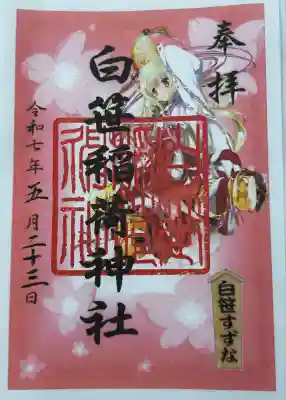 奉拝
白笹稲荷神社
令和七年五月二十三日
白笹すずな